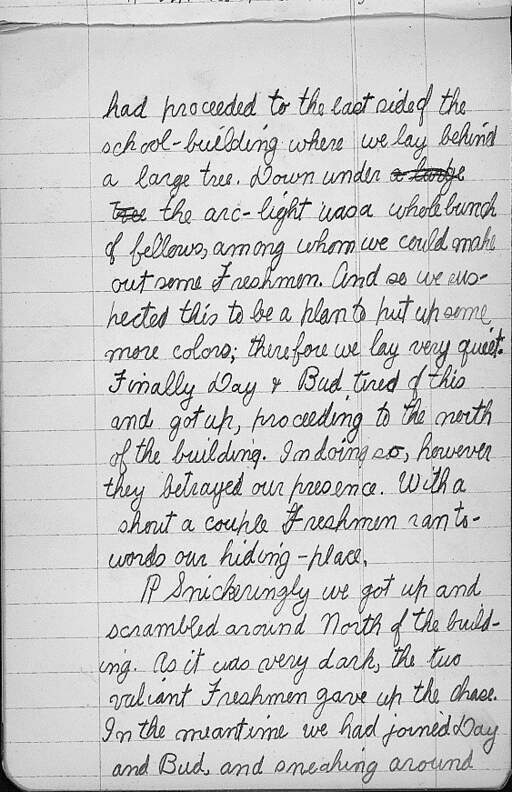 had proceeded to the east side of the
school-building where we lay behind
a large tree. Down under a large
tree the arc-light was a whole bunch
of fellows, among whom we could make
out some Freshmen. And so we sus-
pected this to be a plan to put up some
more colors; therefore we lay very quiet.
Finally Day & Bud, tired of this
and got up, proceeding to the north
of the building. In doing so, however
they betrayed our presence. With a
shout a couple Freshmen ran to-
words our hiding-place.
¶ Snickeringly we got up and
scrambled around North of the build-
ing. As it was very dark, the two
valiant Freshmen gave up the chase.
In the meantime we had joined Day
and Bud, and sneaking around